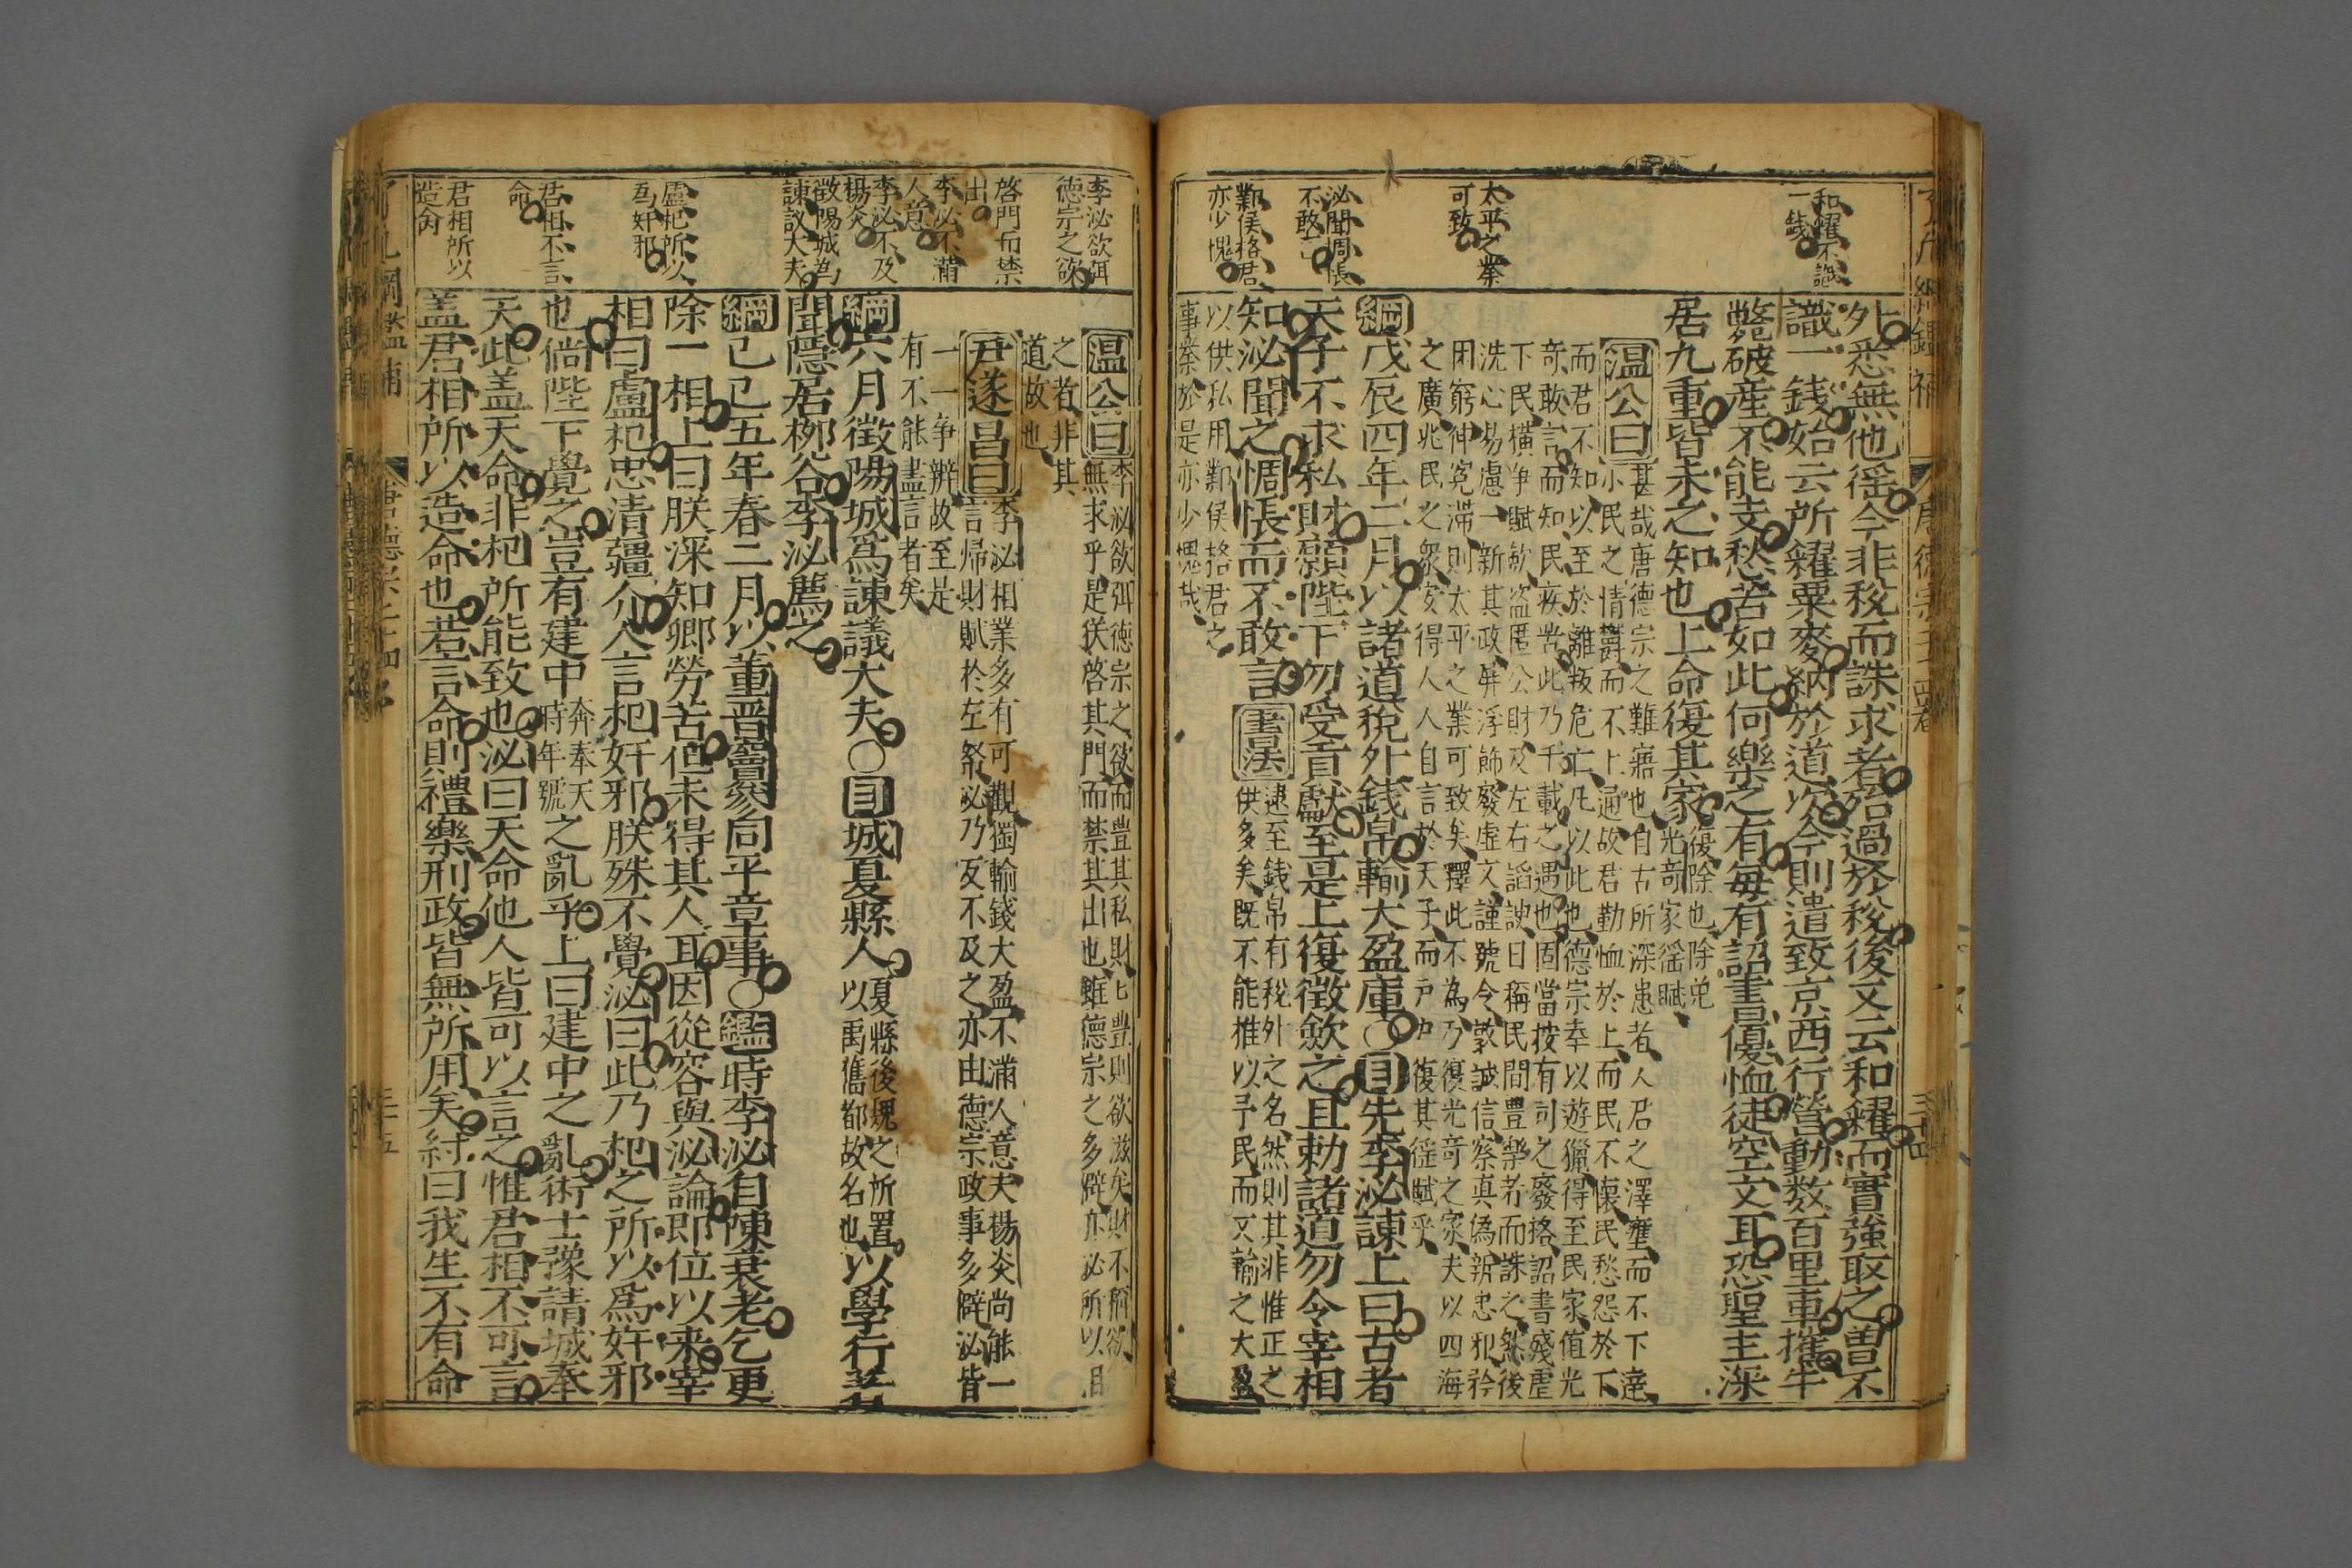 和糴不識
一錢
太平之業
可致
泌聞惆悵
不敢言
難侯格君
亦少愧
外悉無他徭今非稅而誅求者殆過於稅後又云和糴而實強取之曽不
識一錢始云所糴粟麥納於道次今則遣致京西行營動数百里車摧牛
斃破産不能支愁苦如此何樂之有每有詔書優恤徒空文耳恐聖主深
居九重皆未之知也上命復其家
復除也除免
光奇家徭賦
温公曰
甚哉唐德宗之難寤也自古所深患者人君之澤壅而不下達
小民之情鬱而不上通故君勤恤於上而民不懐民愁怨於下
而君不知以至於離叛危亡凡以此也德宗幸以遊獵得至民家值光
竒敢言而知民疾苦此乃千載之遇也固當按有司之廢格詔書殘虐
下民橫争賦歛盗匿公財及左右謟諛日稱民間豊樂者而誅之然後
洗心易慮一新其政屏浮飾廢虚文謹號令敦誠信察真偽辨忠邪矜
困窮伸寃滯則太平之業可致矣釋此不為乃復光奇之家夫以四海
之廣兆民之衆安得人人自言於天子而戸戸復其徭賦乎
綱戊辰四年二月以諸道稅外錢帛輸大盈庫○目先李泌諫上曰古者
天子不求私財願陛下勿受貢獻至是上復徴歛之且勅諸道勿令宰相
知泌聞之惆悵而不敢言書法
逮至錢帛有稅外之名然則其非惟正之
供多矣既不能推以予民而又輸之大盈
以供私用難侯格君之
事業於是亦少愧哉
李泌欲弭
德宗之欲
啓門而禁
出
李泌不滿
人意
李泌不及
楊炎
徵陽城為
諫議大夫
盧杞所以
爲奸邪
君相不言
命
君相所以
造命
温公曰
李泌欲弭德宗之欲而豊其私財豊則欲滋矣財不稱欲
無求乎是猶啓其門而禁其出也雖德宗之多僻亦泌所以相
之者非其
道故也
尹遂昌曰
李泌相業多有可觀獨輸錢大盈不滿人意夫楊炎尚能一
言歸財賦於左帑泌乃反不及之亦由德宗政事多僻泌皆
一一争辨故至是
有不能盡言者矣
綱六月徵陽城爲諫議大夫○目城夏縣人
夏縣後魏之所置
以禹舊都故名也
以學行著
聞隱居栁谷李泌薦之
綱己巳五年春二月以董晋竇參同平章事○鑑時李泌自陳衰老乞更
除一相上曰朕深知卿勞苦但未得其人耳因從容與泌論即位以来宰
相曰盧杞忠清疆介人言杞奸邪朕殊不覺泌曰此乃杞之所以爲奸邪
也倘陛下覺之豈有建中
奔奉天
時年號
之亂乎上曰建中之亂術士豫請城奉
天此盖天命非杞所能致也泌曰天命他人皆可以言之惟君相不可言
盖君相所以造命也若言命則禮樂刑政皆無所用矣紂曰我生不有命